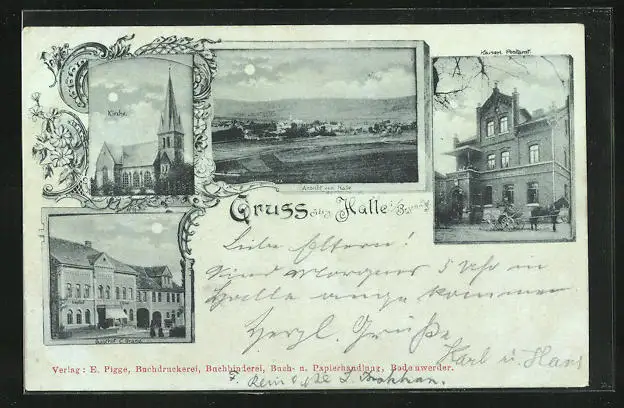 Kaiserl. Postamt.
Kirche.
Ansicht von Halle
Gruss aus Halle
Liebe Eltern!
Sind Morgens 5 Uhr in
Halle angekommen
Herzl. Grüße
Karl u. Hans
Verlag: E. Pigge, Buchdruckerei, Buchbinderei, Buch- u. Papierhandlung, Bodenwerder.